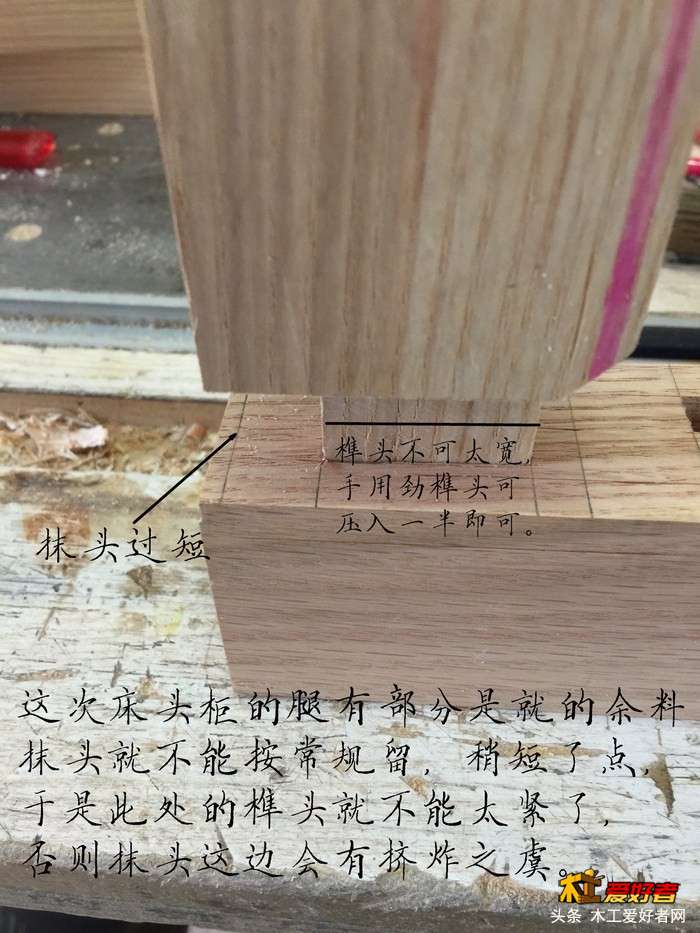 榫头不可太宽,
手用劲榫头可
压入一半即可。
抹头过短
这次床头柜的腿有部分是就的余料
抹头就不能按常规留,稍短了点,
于是此处的榫头就不能太紧了,
否则抹头这边会有挤炸之虞。
木工爱好者
头条 木工爱好者网